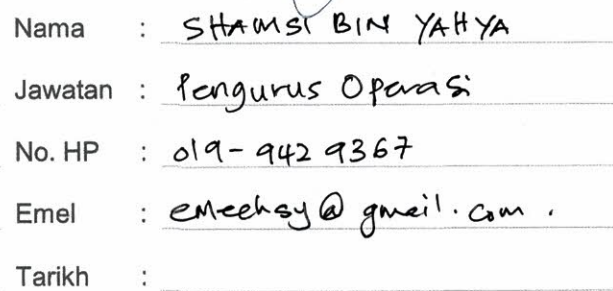 Nama : SHAMSI BIN YAHYA
Jawatan : Pengurus Operasi
No. HP : 019-942 9367
Emel : emeehsy@gmail.com.
Tarikh :